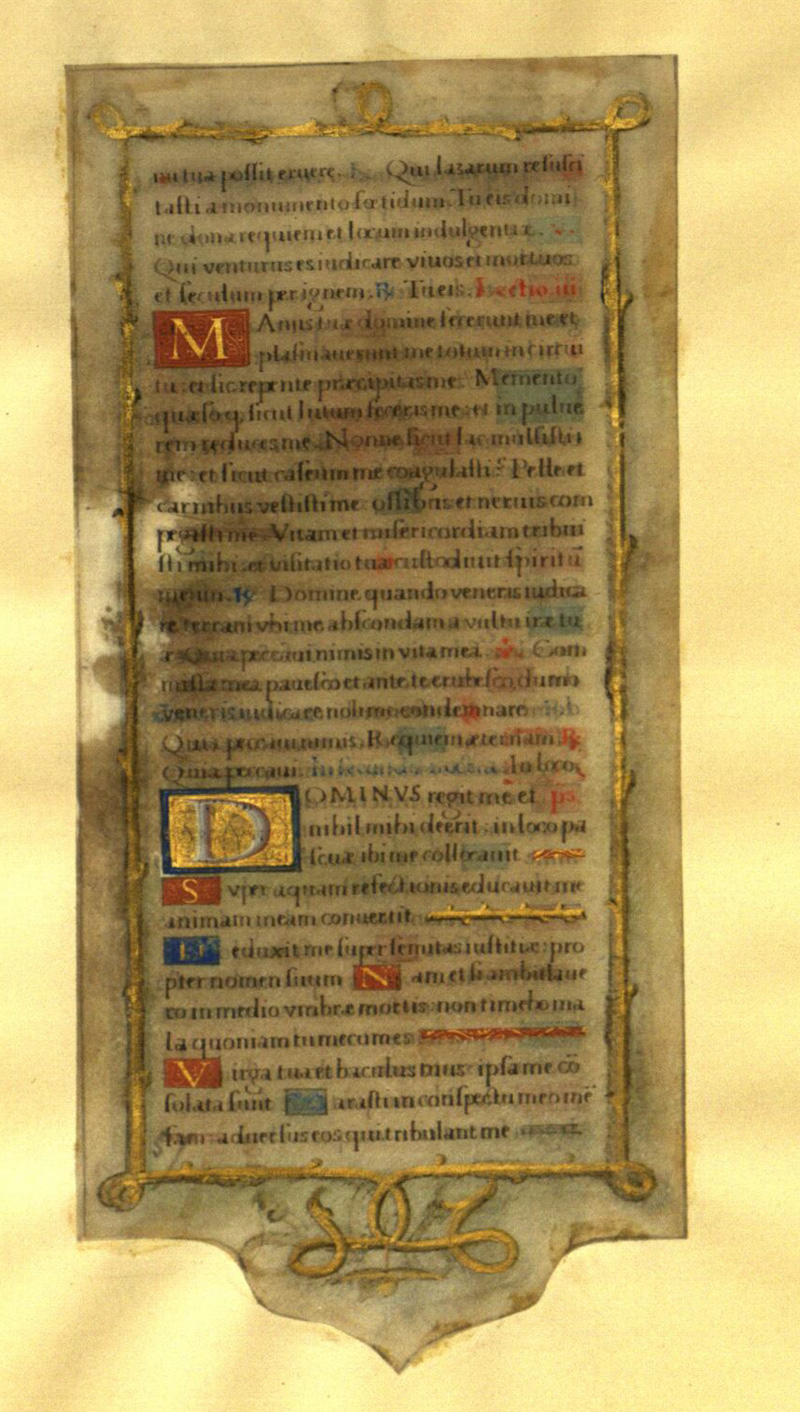 nu tua possit eruere. Qui lazarum resusci
tasti a monumento fœtidum. Tu eis domi
ne dona requiem et locum indulgentiæ.
Qui venturus es iudicare viuos et mortuos
et seculum per ignem. ℟ Tu eis. Lectio iii
Manus tuæ domine fecerunt me et
plasmauerunt me totum in circui
tu: et sic repente præcipitas me. Memento
quæso q ficut lutum feceris me: et in pulue
rem reduces me. Nonne sicut lac mulsisti
me: et sicut caseum me coagulasti? Pelle et
carnibus vestisti me: ossibus et neruis com
pegisti me. Vitam et misericordiam tribui
sti mihi: et visitatio tua custodiuit spiritū
meum. ℟ Domine quando veneris iudica
re terram vbi me abscondam a vultu iræ tu
æ Quia peccaui nimis in vita mea. Com
missa mea pauesco et ante te erubesco: dum
veneris iudicare noli me condemnare.
Quia peccaui nimis. Requiem æternam. ℟
Quia peccaui. In loco
DOMINVS regit me et ps.
nihil mihi deerit: in loco pa
scuæ ibi me collocauit
Super aquam refectionis educauit me
animam meam conuertit.
Deduxit me super semitas iustitiæ: pro
pter nomen suum Nam et si ambulaue
ro in medio vmbræ mortis: non timebo ma
la quoniam tu mecum es
Virga tua et baculus tuus: ipsa me cō
solata sunt Parasti in conspectu meo mē
sam: aduersus eos qui tribulant me